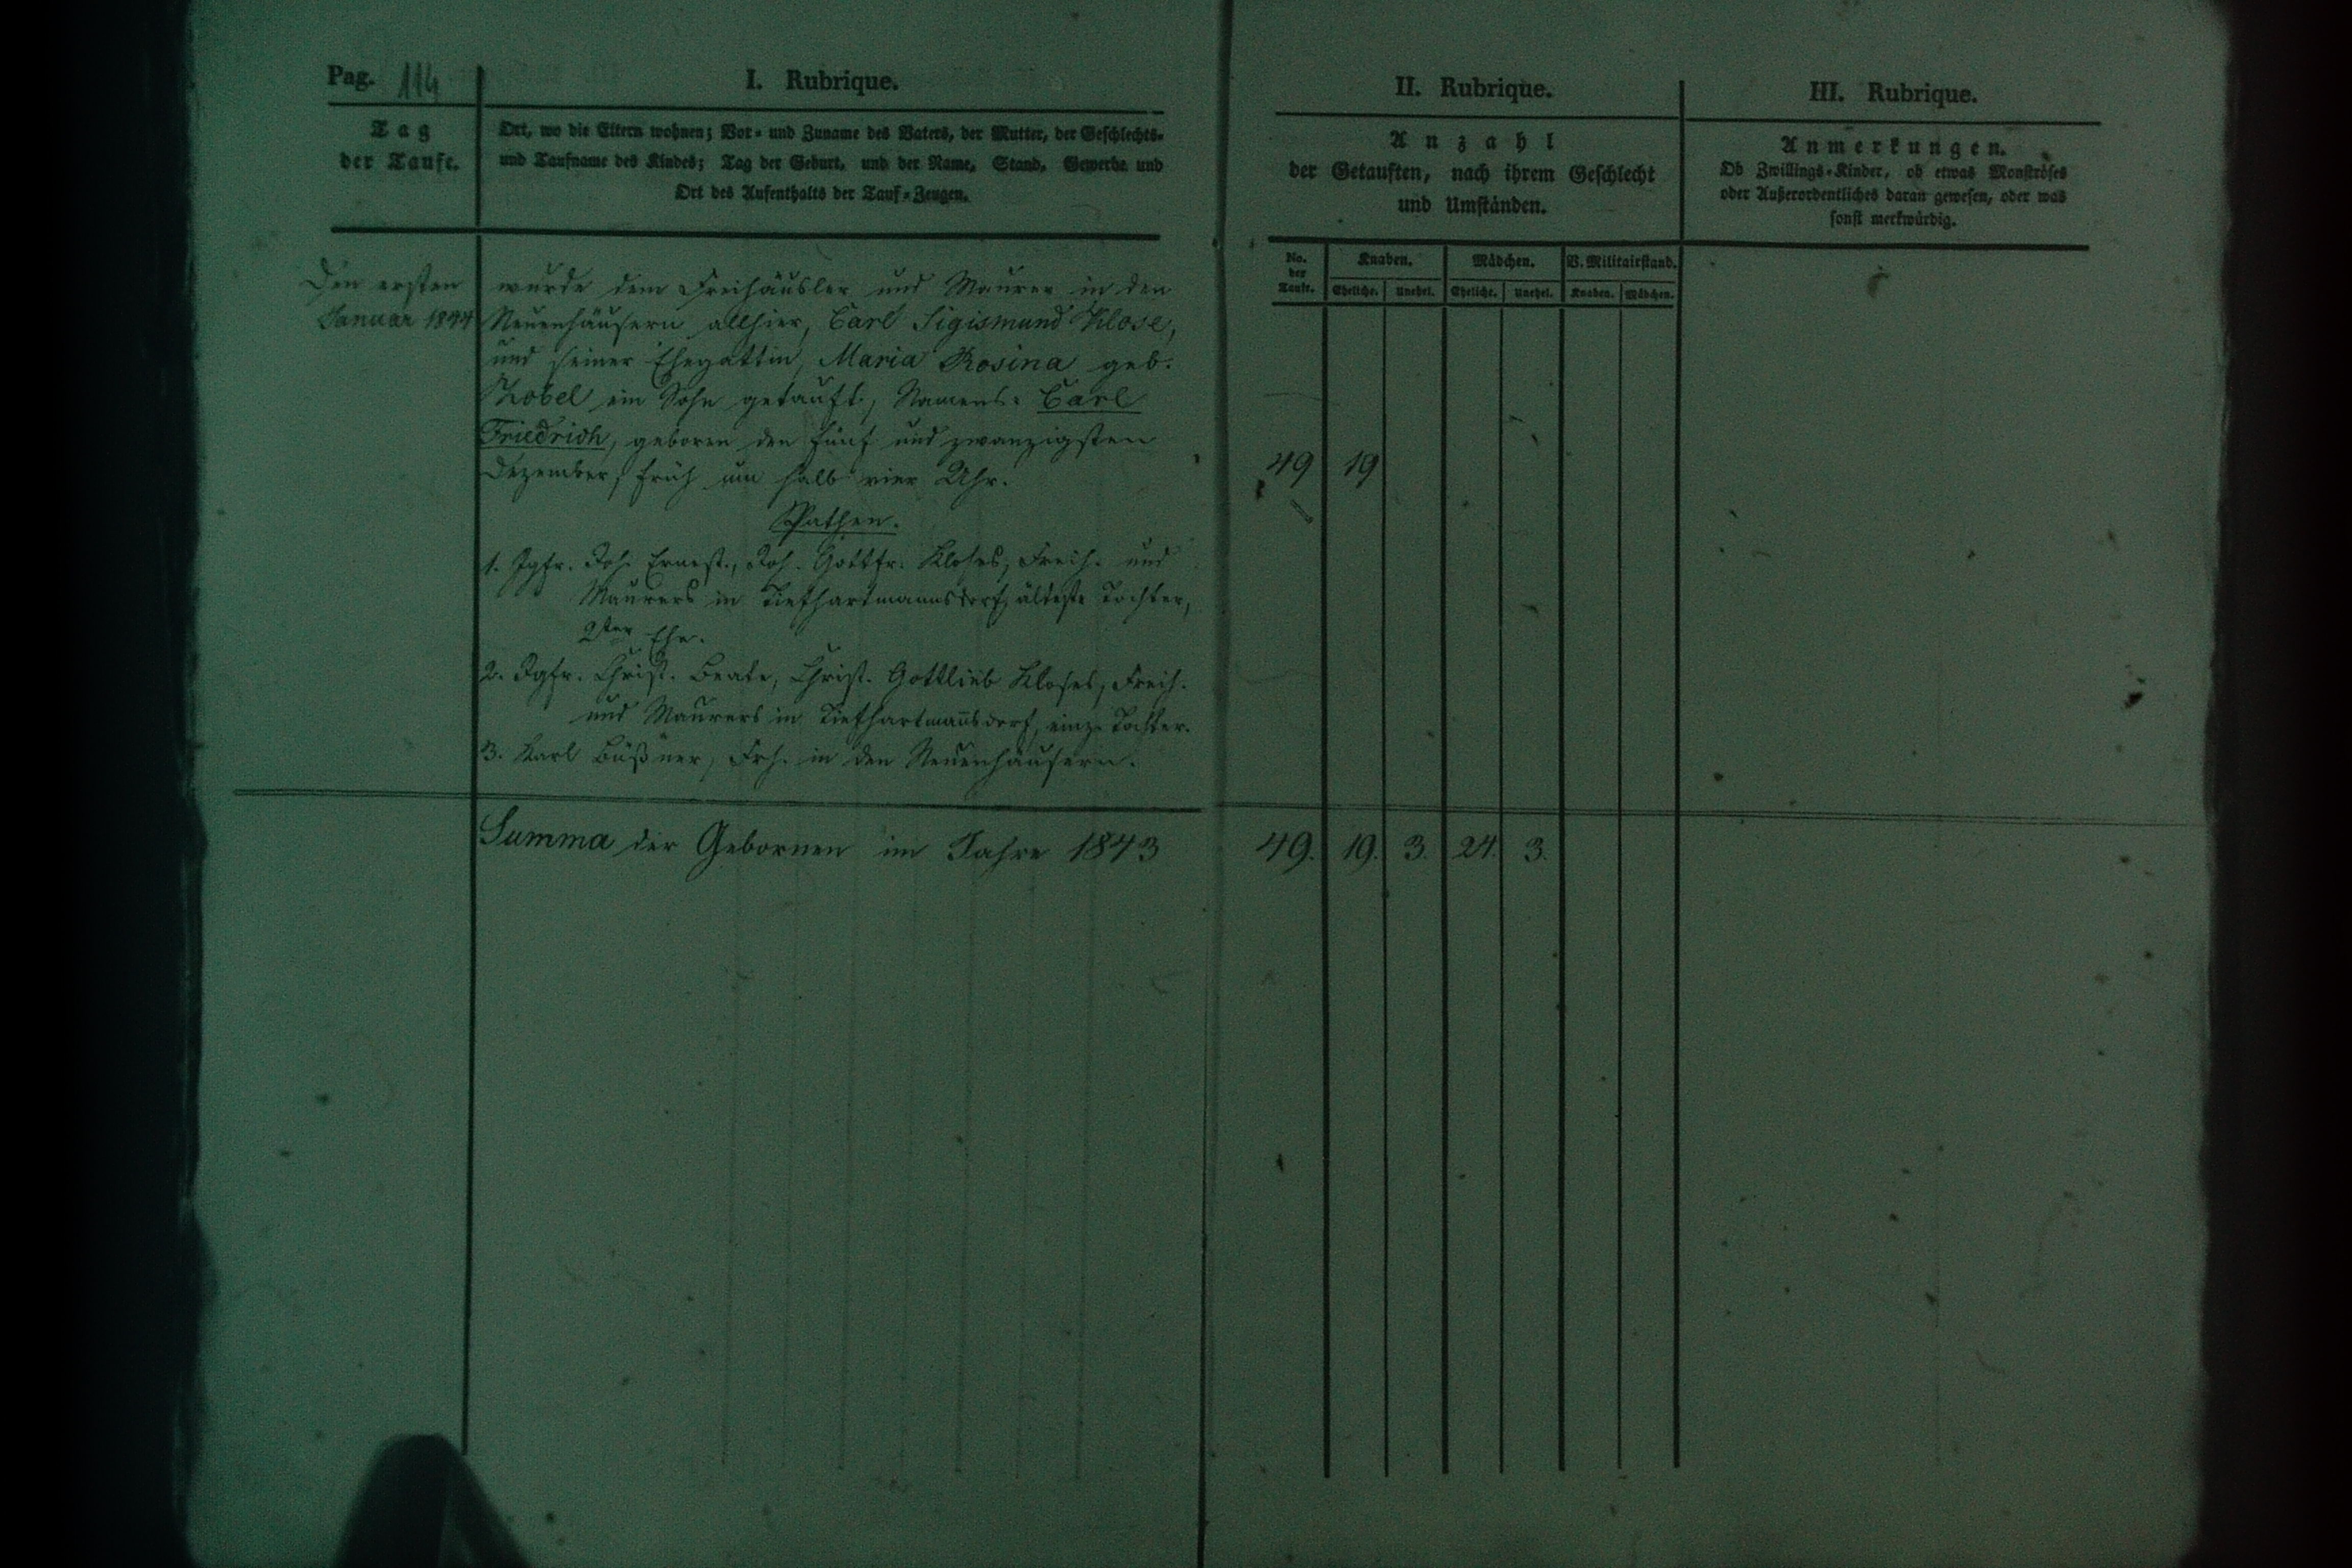 Pag. 114
I. Rubrique.
Tag
der Taufe.
Ort, wo die Eltern wohnen; Vor- und Zuname des Vaters, der Mutter, der Geschlechts-
und Taufname des Kindes; Tag der Geburt, und der Name, Stand, Gewerbe und
Ort des Aufenthalts der Tauf-Zeugen.
Den ersten
Januar 1844
wurde dem Freihäusler und Maurer in den
Neuenhäusern allhier, Carl Sigismund Klose,
und seiner Ehegattin, Maria Rosina geb.
Zobel ein Sohn getauft, Namens: Carl
Friedrich, geboren den fünf und zwanzigsten
Dezember, früh um halb vier Uhr.
Pathen.
1. Jgfr. Joh. Ernest., Joh. Gottfr. Kloses, Freih. und
Maurers in Tiefhartmannsdorf, älteste Tochter,
2ter Ehe.
2. Jgfr. Christ. Beate, Christ. Gottlieb Kloses, Freih.
und Maurers in Tiefhartmannsdorf, einz. Tochter.
3. Karl Büßner, Frh. in den Neuenhäusern.
Summa der Gebornen im Jahre 1843
II. Rubrique.
Anzahl
der Getauften, nach ihrem Geschlecht
und Umständen.
No. der Taufe.
Knaben. Mädchen. V. Militairstand.
Eheliche. Unehel. Eheliche. Unehel. Knaben. Mädchen.
49 19
49. 19. 3. 24. 3.
III. Rubrique.
Anmerkungen.
Ob Zwillings-Kinder, ob etwas Monströses
oder Außerordentliches daran gewesen, oder was
sonst merkwürdig.